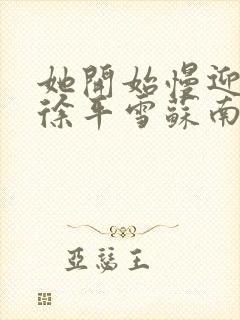 她開始慢迎
徐平雪蘇南
亞瑟王